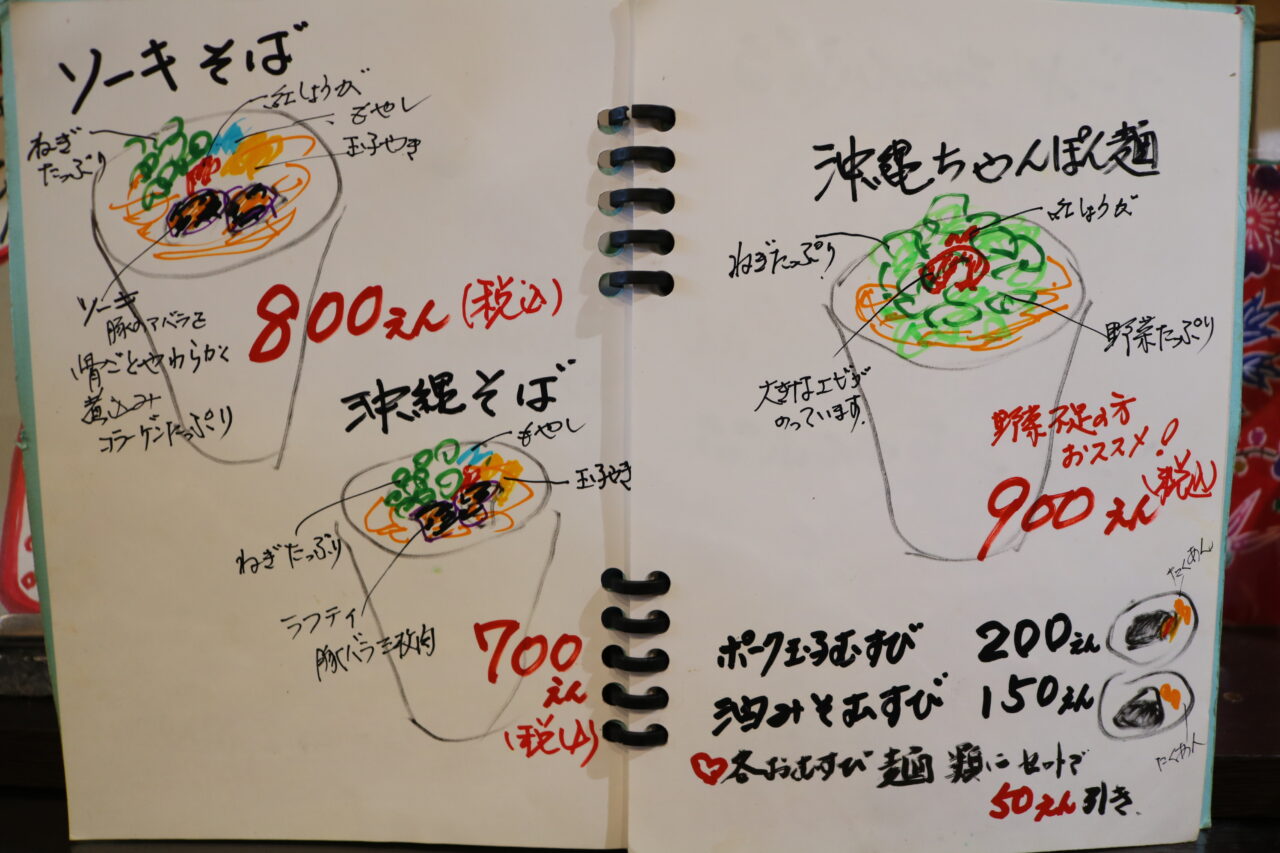 ソーキそば
紅しょうが
もやし
玉子やき
ねぎ
たっぷり
ソーキ
豚のアバラを
骨ごとやわらかく
煮込み
コラーゲンたっぷり
800えん(税込)
沖縄そば
もやし
玉子やき
ねぎたっぷり
ラフティ
豚バラ三枚肉
700
えん
(税込)
沖縄ちゃんぽん麺
紅しょうが
ねぎたっぷり
野菜たっぷり
大きなエビが
のっています.
野菜不足の方
おススメ!
900えん(税込)
たくあん
ポーク玉子むすび 200えん
油みそむすび 150えん
たくあん
♡各おむすび 麺類にセットで
50えん引き.